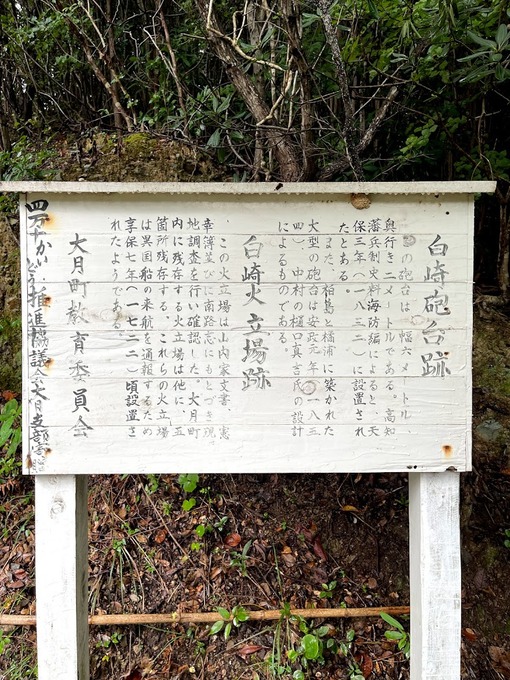 白崎砲台跡
の砲台は、幅六メートル、
奥行き二メートルである。高知
藩兵制史料海防編によると、天
保三年(一八三二)に設置され
たとある。
また、柏島と橘浦に築かれた
大型の砲台は安政元年(一八三
四)、中村の樋口真吉氏の設計
によるものである。
白崎火立場跡
この火立場は山内家文書、憲
章簿並びに南路志にもとづき現
地調査を行い確認した。大月町
内に残存する火立場は他に、五
箇所残存する。これらの火立場
は異国船の来航を通報するため
享保七年(一七二二)頃設置さ
れたようである。
大月町教育委員会
四万十かいどう推進協議会大月支部寄贈